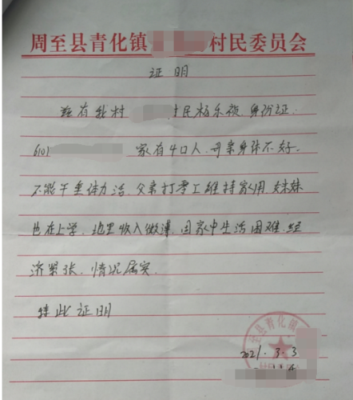 周至县青化镇 村民委员会
证明
兹有我村 村民杨乐颖 身份证
6101 家有4口人, 母亲身体不好,
不能干重体力活, 父亲打零工维持家用, 妹妹
均在上学, 地里收入微薄, 因家中生活困难, 经
济紧张, 情况属实
特此证明
2021.3.3